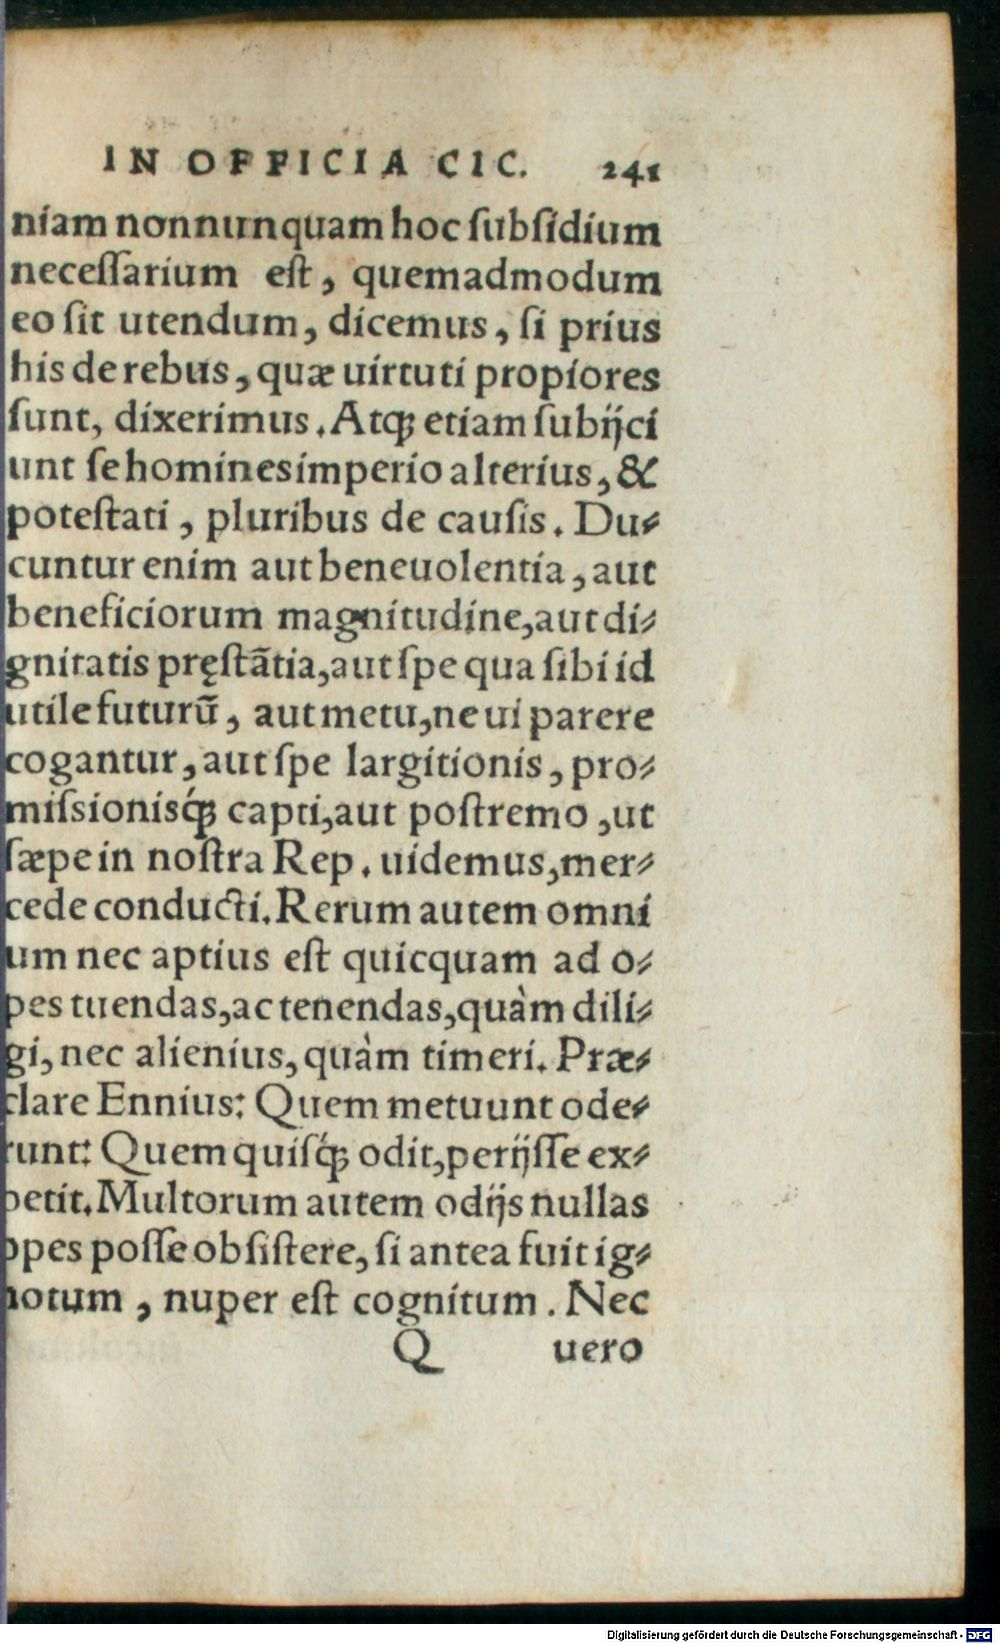 IN OFFICIA CIC. 241
niam nonnunquam hoc ſubſidium
neceſſarium eſt, quemadmodum
eo ſit utendum, dicemus, ſi prius
his de rebus, quæ uirtuti propiores
ſunt, dixerimus. Atqꝫ etiam ſubijci
unt ſe homines imperio alterius, &
poteſtati, pluribus de cauſis. Du⸗
cuntur enim aut beneuolentia, aut
beneficiorum magnitudine, aut di⸗
gnitatis pręſtãtia, aut ſpe qua ſibi id
utile futurũ, aut metu, ne ui parere
cogantur, aut ſpe largitionis, pro⸗
miſsionisq́ꝫ capti, aut poſtremo, ut
ſæpe in noſtra Rep. uidemus, mer⸗
cede conducti. Rerum autem omni
um nec aptius eſt quicquam ad o⸗
pes tuendas, ac tenendas, quàm dili⸗
gi, nec alienius, quàm timeri. Præ⸗
clare Ennius: Quem metuunt ode⸗
runt: Quem quiſq́ꝫ odit, perijſſe ex⸗
petit. Multorum autem odijs nullas
opes poſſe obſiſtere, ſi antea fuit ig⸗
notum, nuper eſt cognitum. Nec
Q uero
Digitalisierung gefördert durch die Deutsche Forschungsgemeinschaft - DFG